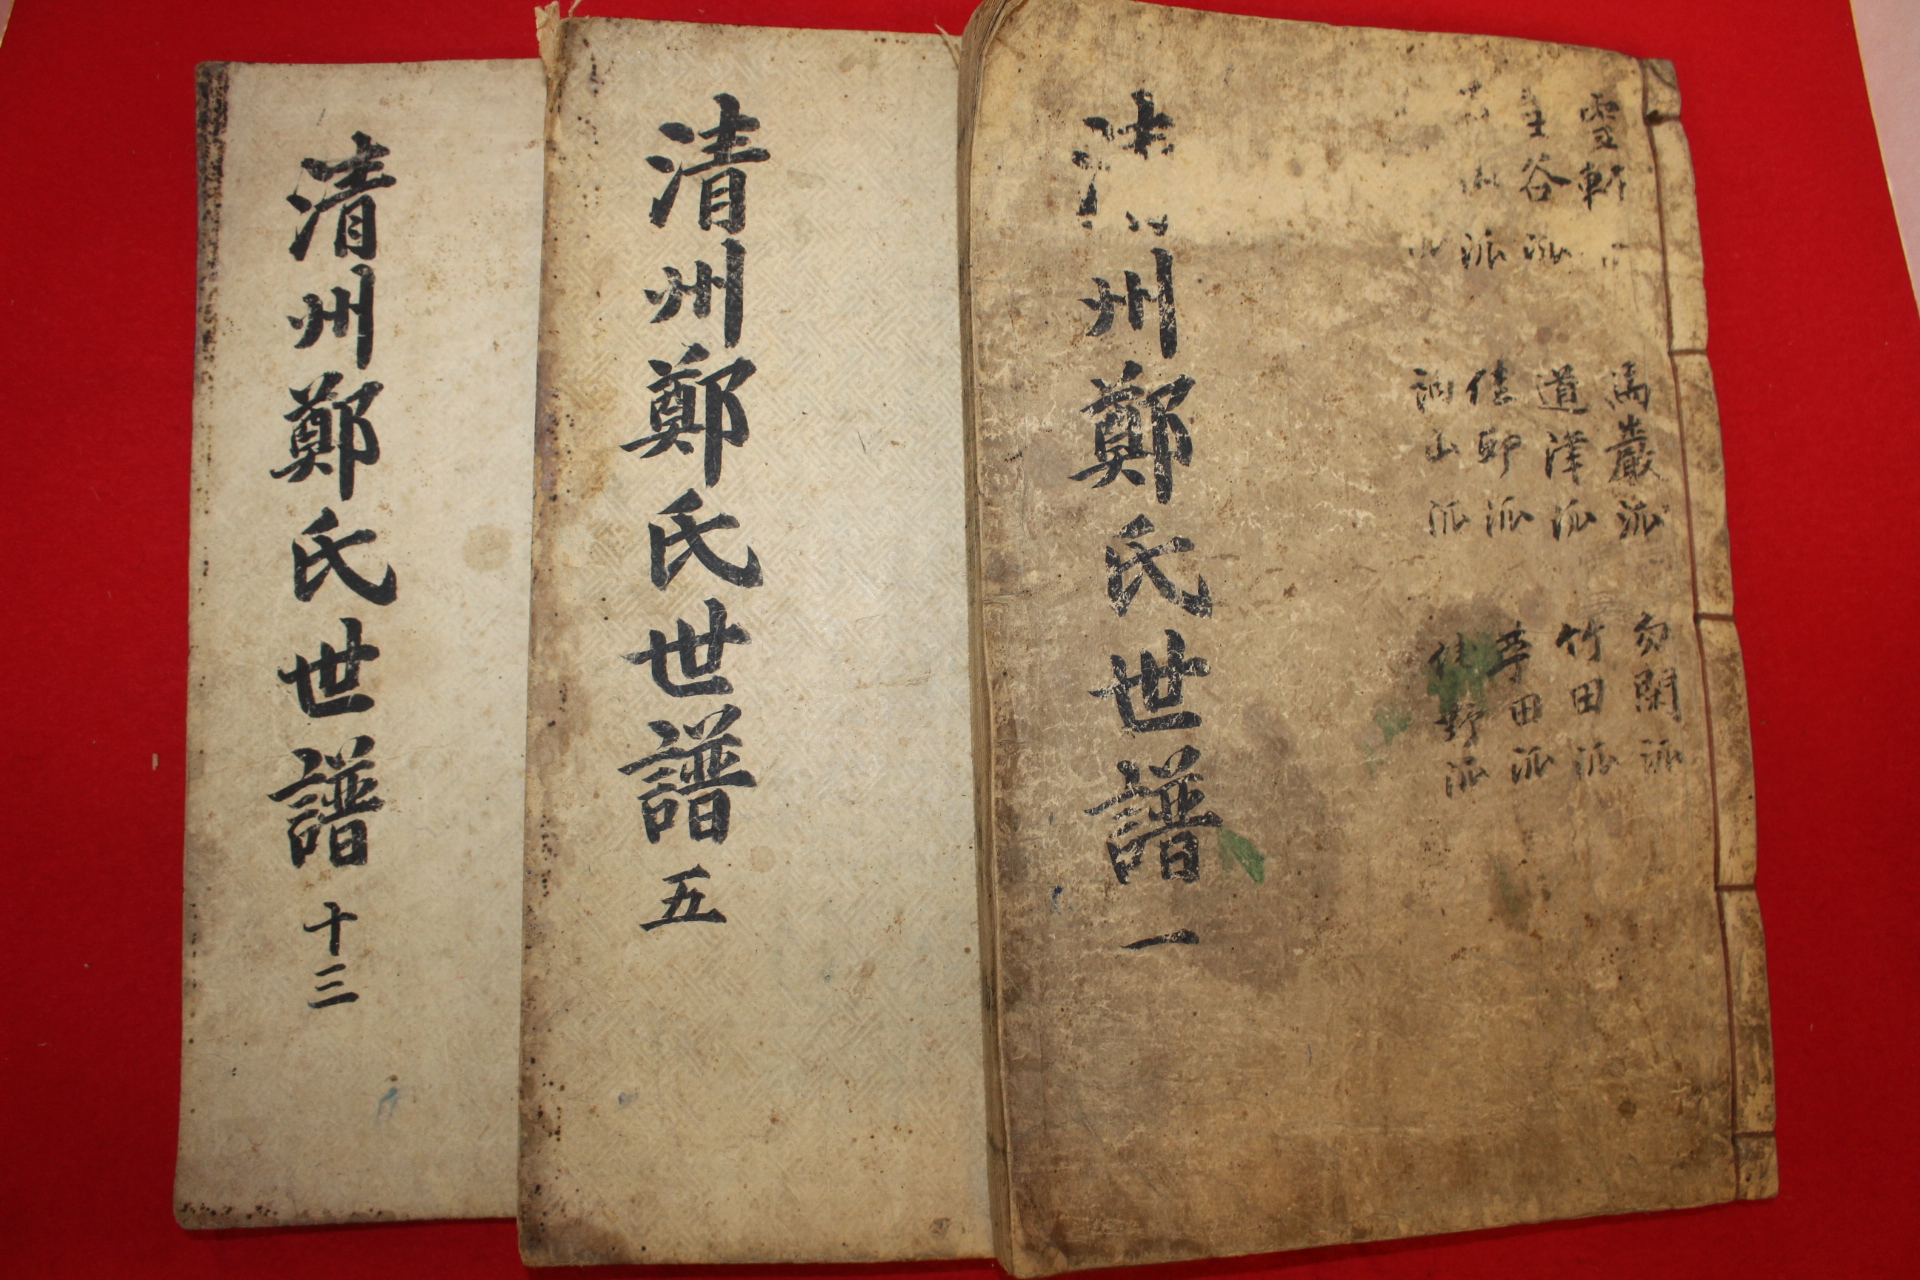 清州鄭氏世譜 一
雪軒
谷派
派
萬巖派
道澤派
佳郊派
山派
勿閑派
竹田派
田派
野派
清州鄭氏世譜 五
清州鄭氏世譜 十三